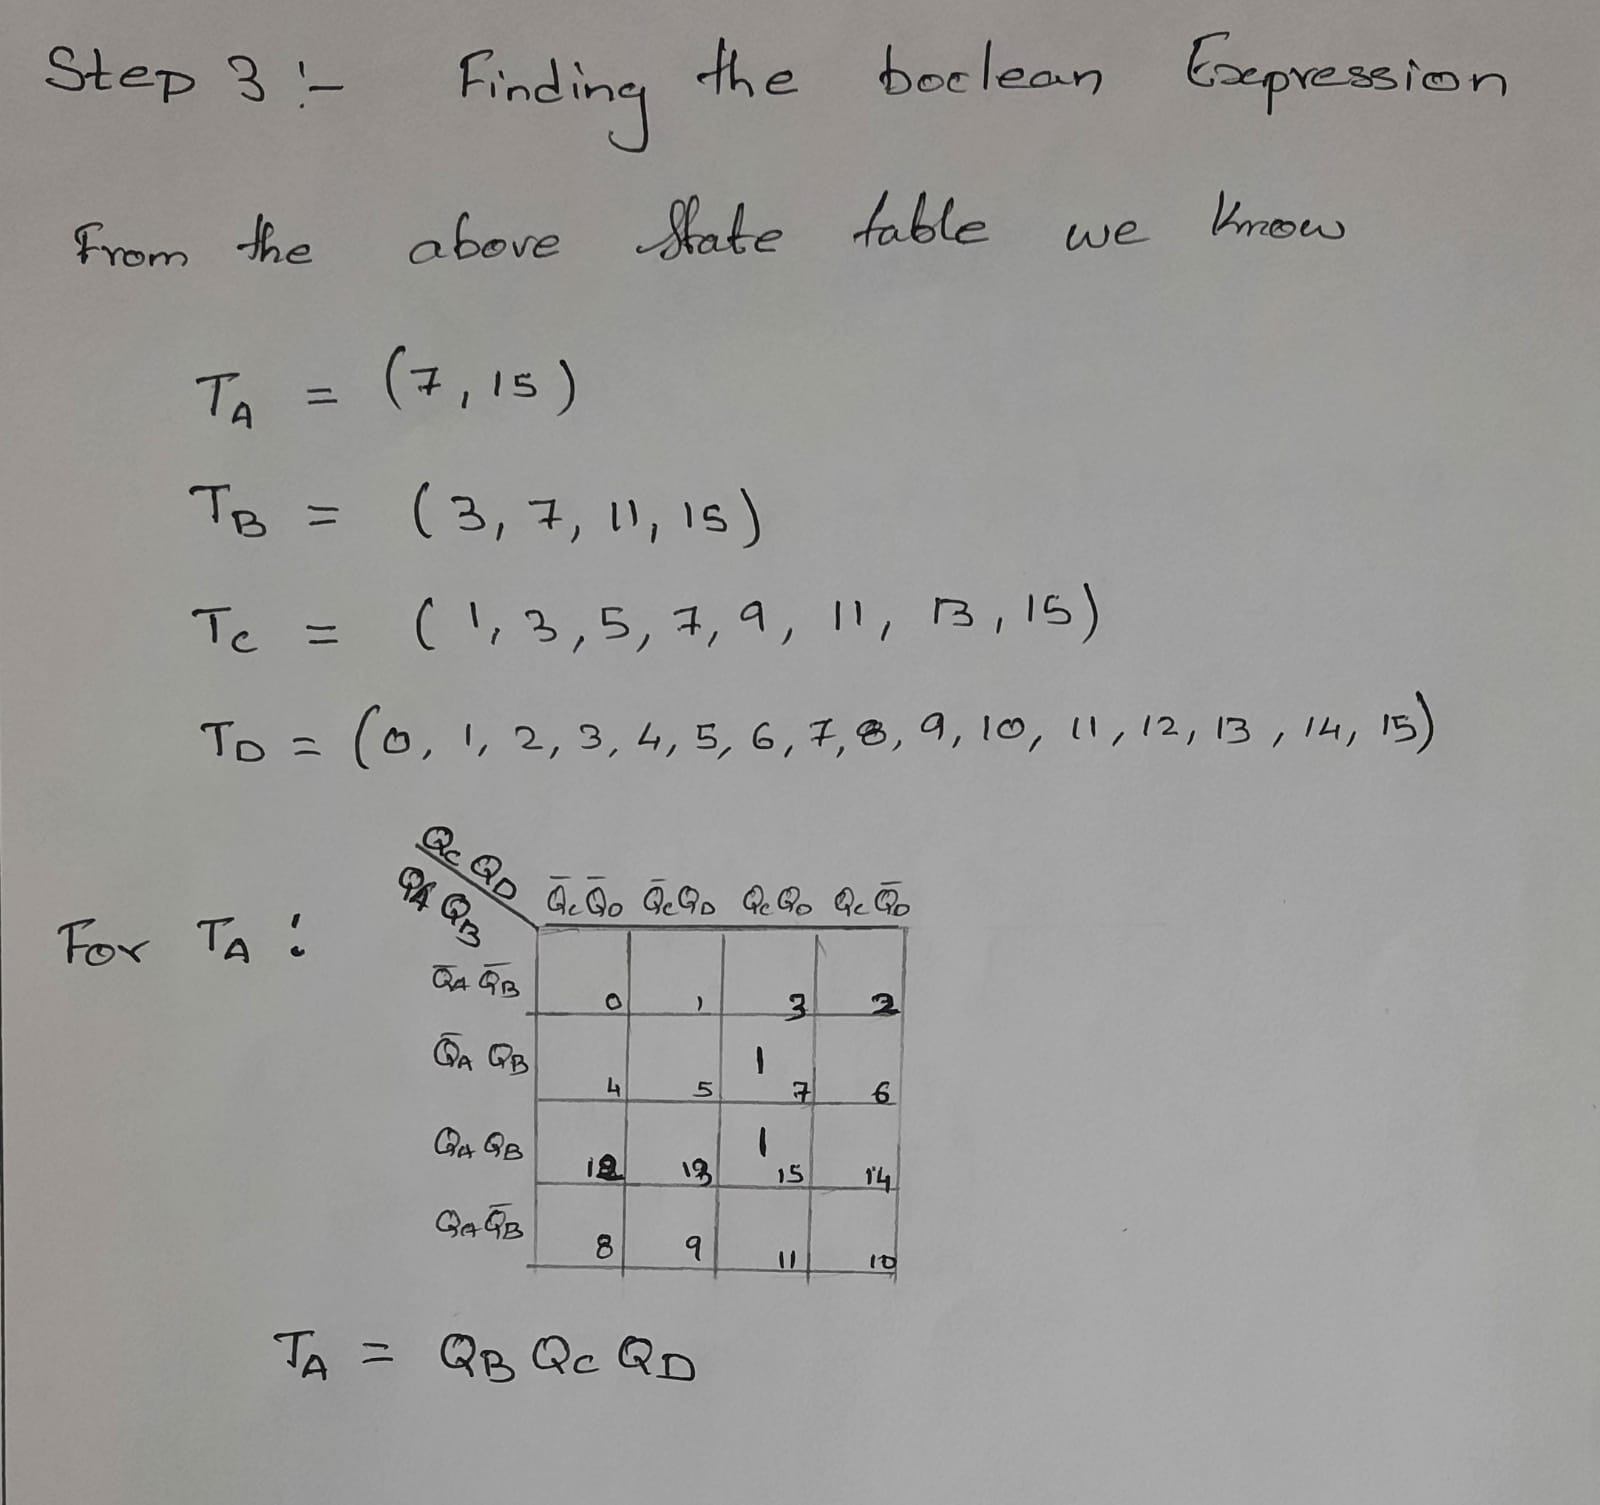 Step 3 :- Finding the boolean Expression
From the above state table we know
TA = (7, 15)
TB = (3, 7, 11, 15)
TC = (1, 3, 5, 7, 9, 11, 13, 15)
TD = (0, 1, 2, 3, 4, 5, 6, 7, 8, 9, 10, 11, 12, 13, 14, 15)
QC QD
QA QB
Q̄C Q̄D Q̄C QD QC QD QC Q̄D
For TA :
Q̄A Q̄B 0 1 3 2
Q̄A QB 4 5 1 7 6
QA QB 12 13 1 15 14
QA Q̄B 8 9 11 10
TA = QB QC QD